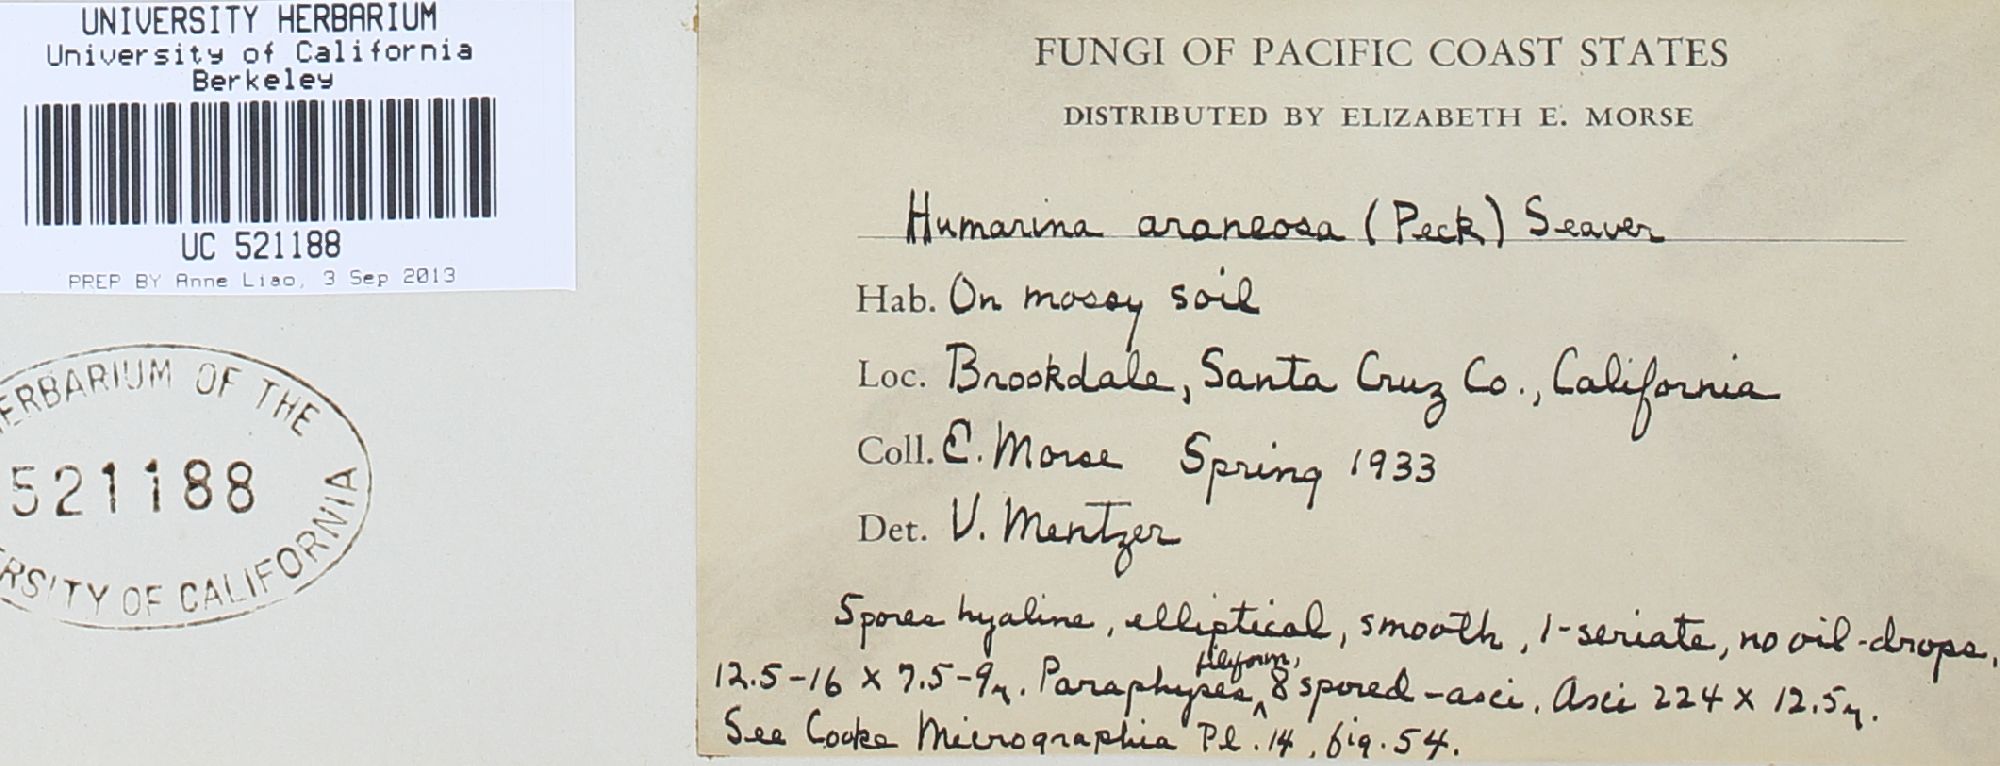 UNIVERSITY HERBARIUM
University of California
Berkeley
UC 521188
PREP BY Anne Liao, 3 Sep 2013
ERBARIUM OF THE
521188
RSITY OF CALIFORNIA
FUNGI OF PACIFIC COAST STATES
DISTRIBUTED BY ELIZABETH E. MORSE
Humarina araneosa (Peck) Seaver
Hab. On mossy soil
Loc. Brookdale, Santa Cruz Co., California
Coll. E. Morse Spring 1933
Det. V. Mentzer
Spores hyaline, elliptical, smooth, 1-seriate, no oil-drops,
12.5-16 x 7.5-9μ. Paraphyses ^filiform, 8 spored-asci. Asci 224 x 12.5μ.
See Cooke Micrographia Pl. 14, fig. 54.